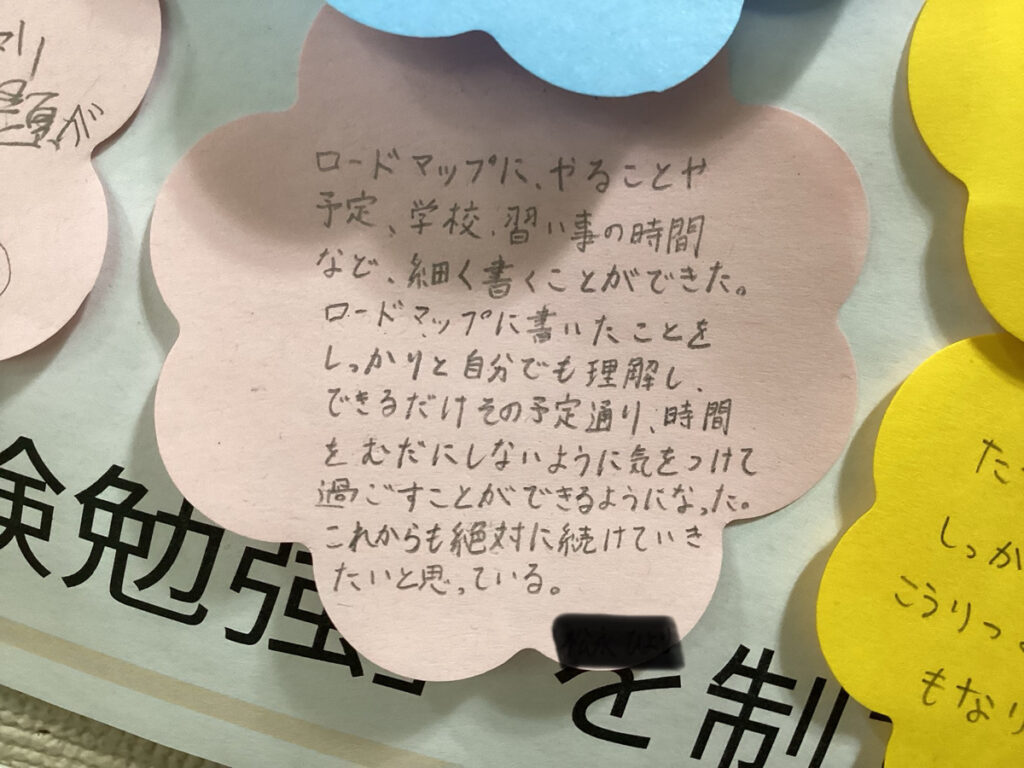 ロードマップに、やることや
予定、学校、習い事の時間
など、細く書くことができた。
ロードマップに書いたことを
しっかりと自分でも理解し、
できるだけその予定通り、時間
をむだにしないように気をつけて
過ごすことができるようになった。
これからも絶対に続けていき
たいと思っている。
マリ
題が
た
しっか
こうりつ
もなり
験勉強
を制